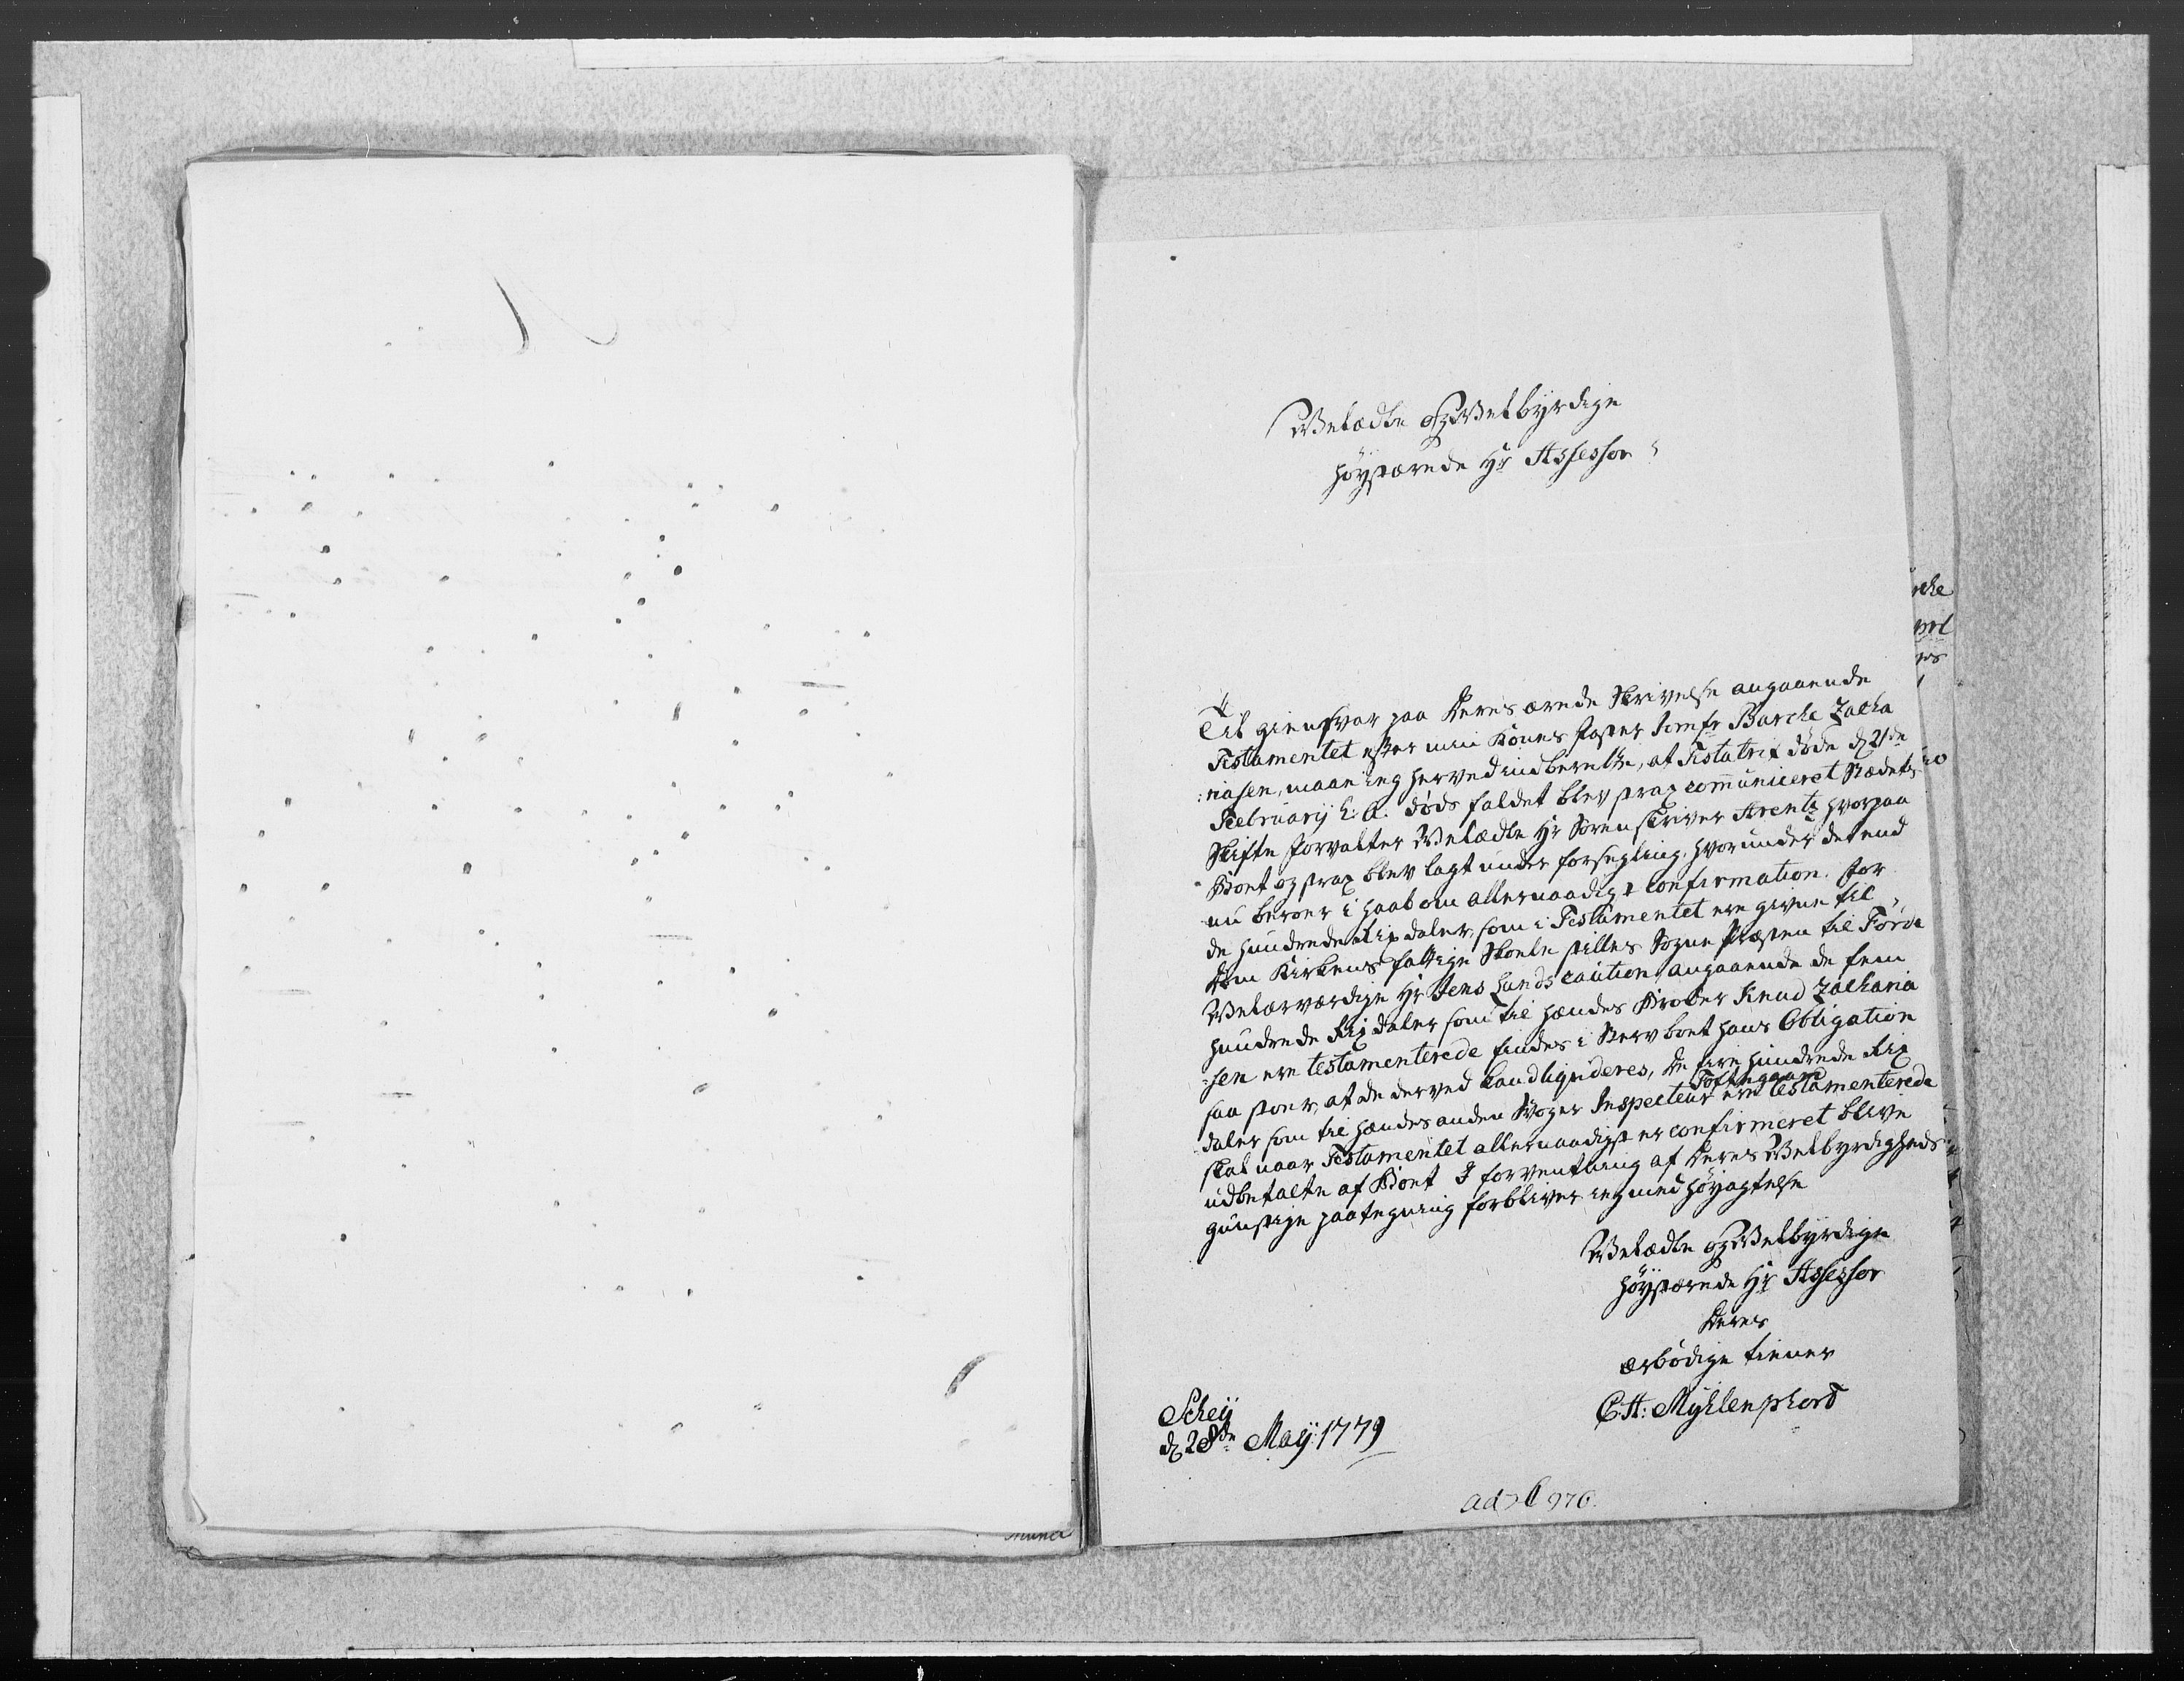 Velædle og Velbyrdige
Høystærede Hr Assessor
Til giensvar paa Deres ærede Skrivelse angaaende
Testamentet efter min Kones Faster Jomfr Barche Zacha
:riasen, maae ieg herved indberette, at Testatrix døde d 21de
Februarij h: a: døds faldet blev strax communiceret Stædets
Skifte forvalter Velædle Hr Sorenskriver Arentz hvorpaa
Boet og strax blev lagt under forsegling, hvorunder det end
nu beroer i haab om allernaadigst confirmation. For
de hundrede Rixdaler, som i Testamentet ere givne til
Dom Kirkens fattige Skole stilles Sogne Præsten til Førde
Velærværdige Hr Jens Lunds caution angaaende de fem
hundrede Rixdaler som til hendes Broder Knud Zacharia
:sen ere testamenterede findes i Sterv boet hans Obligation
saa stoer, at de derved kand liqvideres, de fire hundrede Rix
Tofftegaard
daler som til hendes anden Svoger Inspecteur ere testamenterede
skal naar Testamentet allernaadigst er confirmeret blive
udbetalte af Boet I forventning af Deres Velbyrdigheds
gunstige paategning forbliver ieg med høyagtelse
Velædle og Velbyrdige
Høystærede Hr Assessor
Deres
ærbødige tiener
C. A: Myhlenphort
Scheij
d 28de Maij: 1779
ad 976.